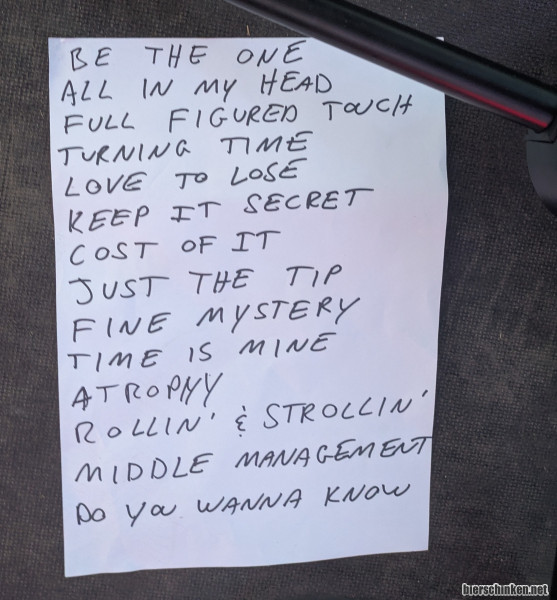 BE THE ONE
ALL IN MY HEAD
FULL FIGURED TOUCH
TURNING TIME
LOVE TO LOSE
KEEP IT SECRET
COST OF IT
JUST THE TIP
FINE MYSTERY
TIME IS MINE
ATROPHY
ROLLIN' & STROLLIN'
MIDDLE MANAGEMENT
DO YOU WANNA KNOW
bierschinken.net